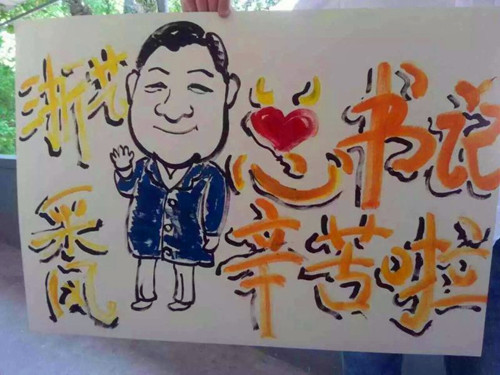 浙艺
采风
总书记
辛苦啦